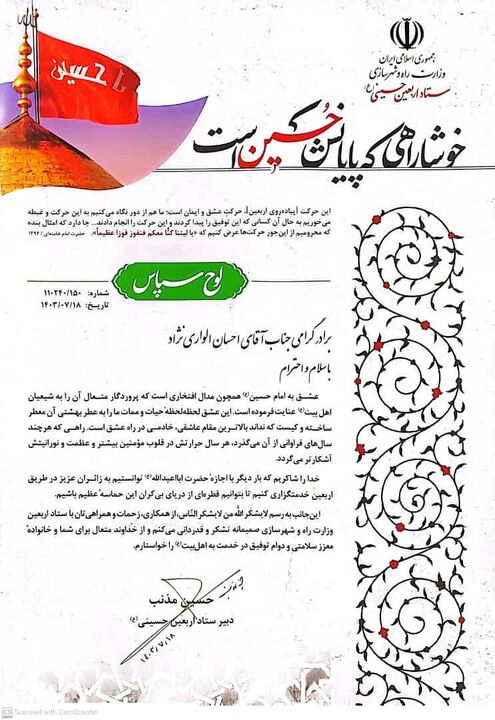 جمهوری اسلامی ایران
وزارت راه و شهرسازی
ستاد اربعین حسینی (ع)
یا حسین
خوشا راهی که پایانش حسین است
این حرکت [پیاده‌روی اربعین]، حرکتِ عشق و ایمان است؛ ما هم از دور نگاه می‌کنیم به این حرکت و غبطه
می‌خوریم به حال آن کسانی که این توفیق را پیدا کردند و این حرکت را انجام دادند... جا دارد که امثال بنده
که محرومیم از این‌جور حرکت‌ها عرض کنیم که «یا لیتنا کنّا معکم فنفوز فوزا عظیما». حضرت امام خامنه‌ای / ۱۳۹۴
لوح سپاس
شماره: ۱۱۰۲۴۰/۱۵۰
تاریخ: ۱۴۰۳/۰۷/۱۸
برادر گرامی جناب آقای احسان الواری نژاد
با سلام و احترام
عشـق به امام حسین(ع) همچون مدال افتخاری است که پروردگار متعـال آن را به شیعیان
اهل بیت(ع) عنایت فرموده است. این عشق لحظه‌لحظهٔ حیات و ممات ما را به عطر بهشتی آن معطر
ساخته و کیست که نداند بالاترین مقام عاشقی، خادمـی در راه عشق است. راهـی که هرچند
سال‌های فراوانی از آن می‌گذرد، هر سال حرارتش در قلوب مؤمنین بیشتر و عظمت و نورانیتش
آشکارتر می‌گردد.
خدا را شاکریم که بار دیگر با اجازهٔ حضرت اباعبدالله(ع) توانستیم به زائـران عزیز در طریق
اربعین خدمتگزاری کنیم تا بتوانیم قطره‌ای از دریای بی‌کران این حماسهٔ عظیم باشیم.
این‌جانب به رسم لایشکر الله من لایشکر النّاس، از همکاری، زحمات و همراهی‌تان با ستاد اربعین
وزارت راه و شهرسازی صمیمانه تشکر و قدردانی می‌کنم و از خداوند متعال برای شما و خانوادهٔ
معزز سلامتی و دوام توفیق در خدمت به اهل‌بیت(ع) را خواستارم.
حسین مذنب
دبیر ستاد اربعین حسینی (ع)
۱۴۰۳,۷,۱۸
CS Scanned with CamScanner